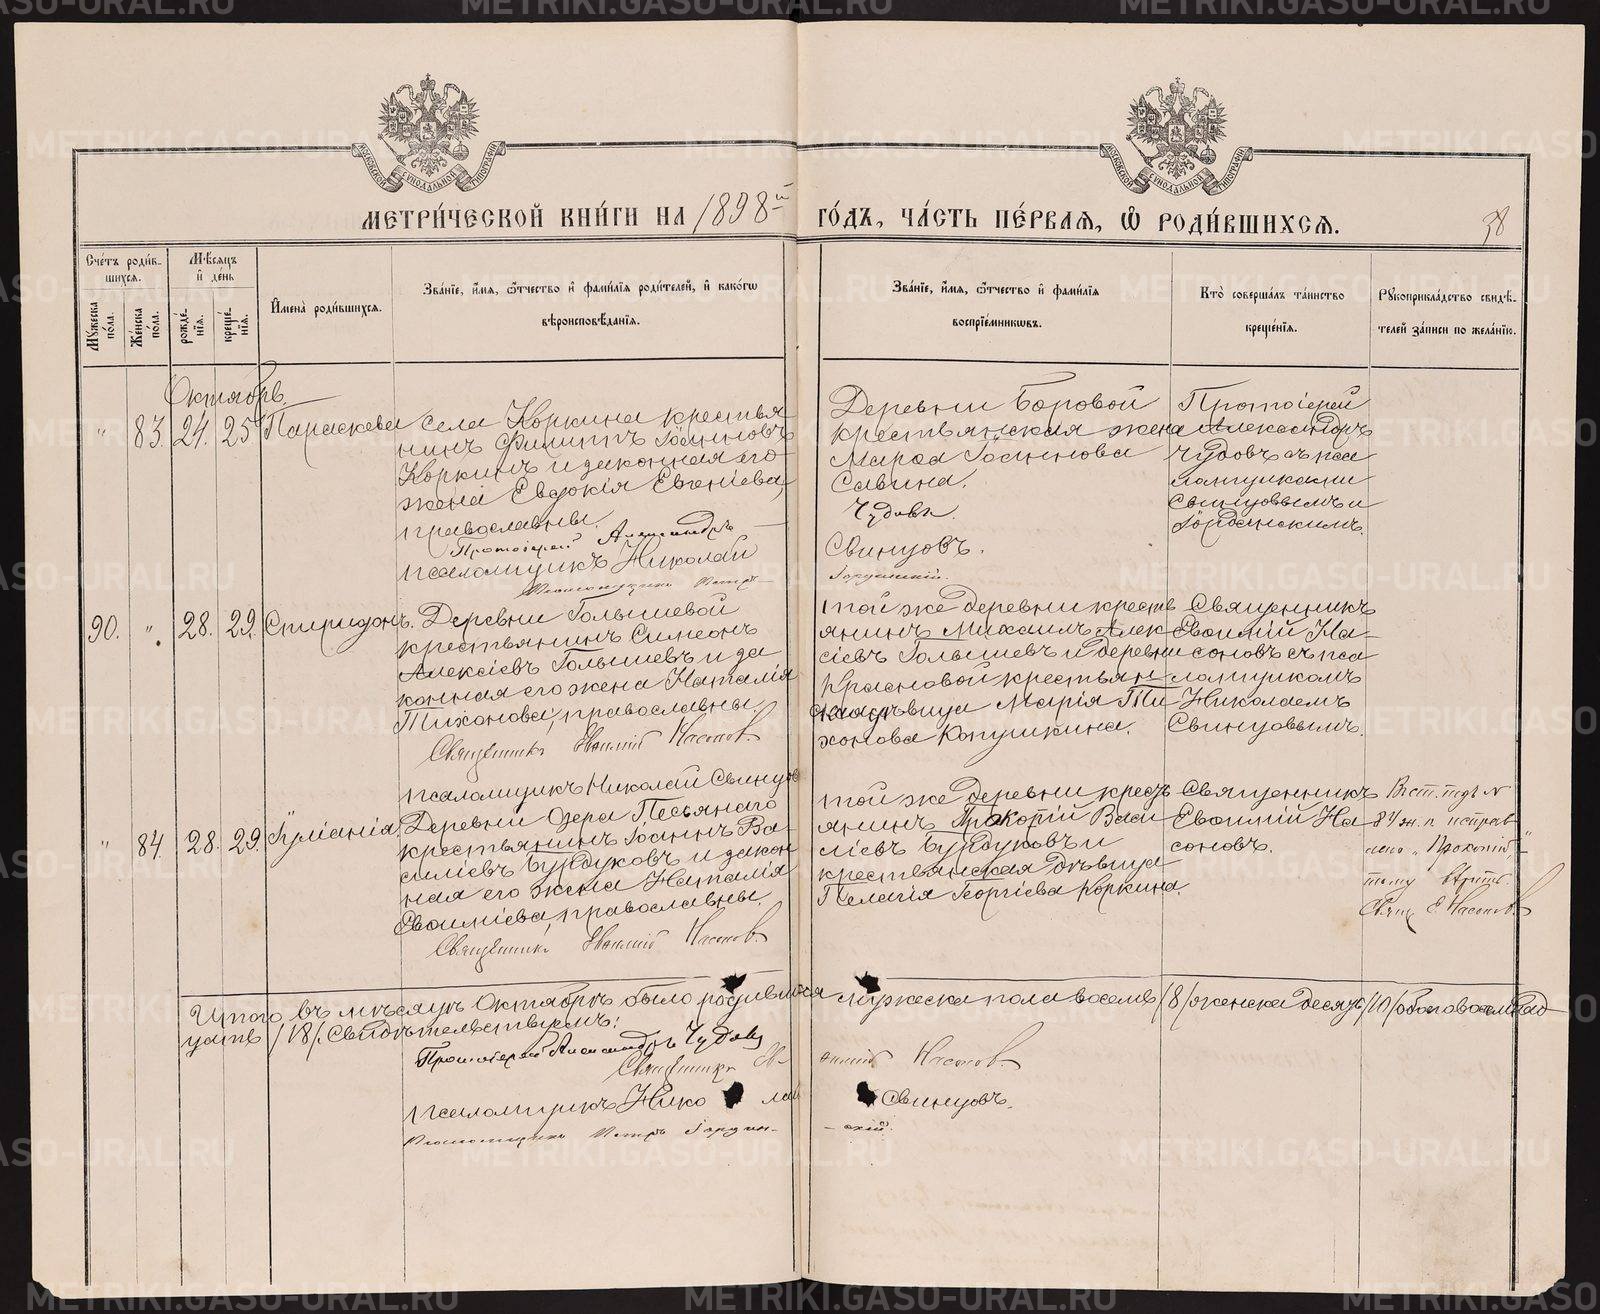 МЕТРИ́ЧЕСКОЙ КНИ́ГИ НА 1898й ГО́ДЪ, ЧА́СТЬ ПЕ́РВАЯ, Ѿ РОДИ́ВШИХСЯ.
38
Сче́тъ роди́в-
шихся.
Мꙋ́жеска по́ла.
Же́нска по́ла.
Мѣ́сяцъ и де́нь
рожде́-
нїя.
креще́-
нїя.
И҆мена̀ роди́вшихся.
Зва́нїе, и҆́мя, ѻ҆́тчество и҆ фами́лїя роди́телей, и҆ како́гѡ
вѣроисповѣ́данїя.
Зва́нїе, и҆́мя, ѻ҆́тчество и҆ фами́лїя
воспрїе́мникѡвъ.
Кто̀ соверша́лъ та́инство
креще́нїя.
Рꙋкоприкла́дство свидѣ́-
телей за́писи по жела́нїю.
Октябрь.
" 83. 24. 25 Параскева
Села Коркина крестья
нинъ Филиппъ Іоанновъ
Коркинъ и законная его
жена Евдокія Евгеніева,
православны.
Протоіерей Александръ
Псаломщикъ Николай
Псаломщикъ Петръ
Деревни Боровой
крестьянская жена
Марѳа Іоаннова
Савина.
Чудовъ.
Свинцовъ.
Іорданскій.
Протоіерей
Александръ
Чудовъ съ пса
ломщиками
Свинцовымъ и
Іорданскимъ.
90. " 28. 29. Спиридонъ.
Деревни Голышевой
крестьянинъ Симеонъ
Алексіевъ Голышевъ и за
конная его жена Наталія
Тихонова, православны.
Священникъ Евѳимій Насонов.
Псаломщикъ Николай Свинцов
Той же деревни крестъ
янинъ Михаилъ Алек
сіевъ Голышевъ и деревни
Красновой крестьян
дѣвица Марія Ти
хонова Копушкина.
Священникъ
Евѳимій На-
соновъ съ пса
ломщикомъ
Николаемъ
Свинцовымъ.
" 84. 28. 29. Іуліанія.
Деревни Озера Песьянаго
крестьянинъ Іоаннъ Ва-
силіевъ Бурдуковъ и закон
ная его жена Наталія
Евѳиміева, православны.
Священникъ Евѳимій Насонов.
Той же деревни крест
янинъ Прокопій Васи
ліевъ Бурдуковъ и
крестьянская дѣвица
Пелагія Георгіева Коркина.
Священникъ
Евѳимій На
соновъ.
В ст. подъ №
84 ж. п исправ
лено „Прокопій„
тому вѣрить.
Свящ Е. Насонов.
Итого въ мѣсяцѣ Октябрѣ было родившихся мужеска пола восемь /8/ женска десять /10/ обоего восемнад
цать /18/. Свидѣтельствуемъ:
Протоіерей Александръ Чудовъ
Священникъ Ев- ѳимій Насонов.
Псаломщикъ Нико лай Свинцовъ.
Псаломщикъ Петръ Іордан- -скій.